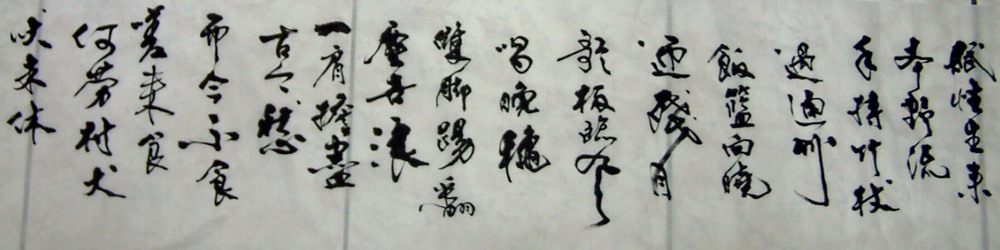 賦性生來
本野流
手持竹杖
過通州
飯籃向曉
迎殘月
歌板臨風
唱晚穐
雙脚踢翻
塵世浪
一肩擔盡
古今愁
而今不食
嗟來食
何勞村犬
吠未休